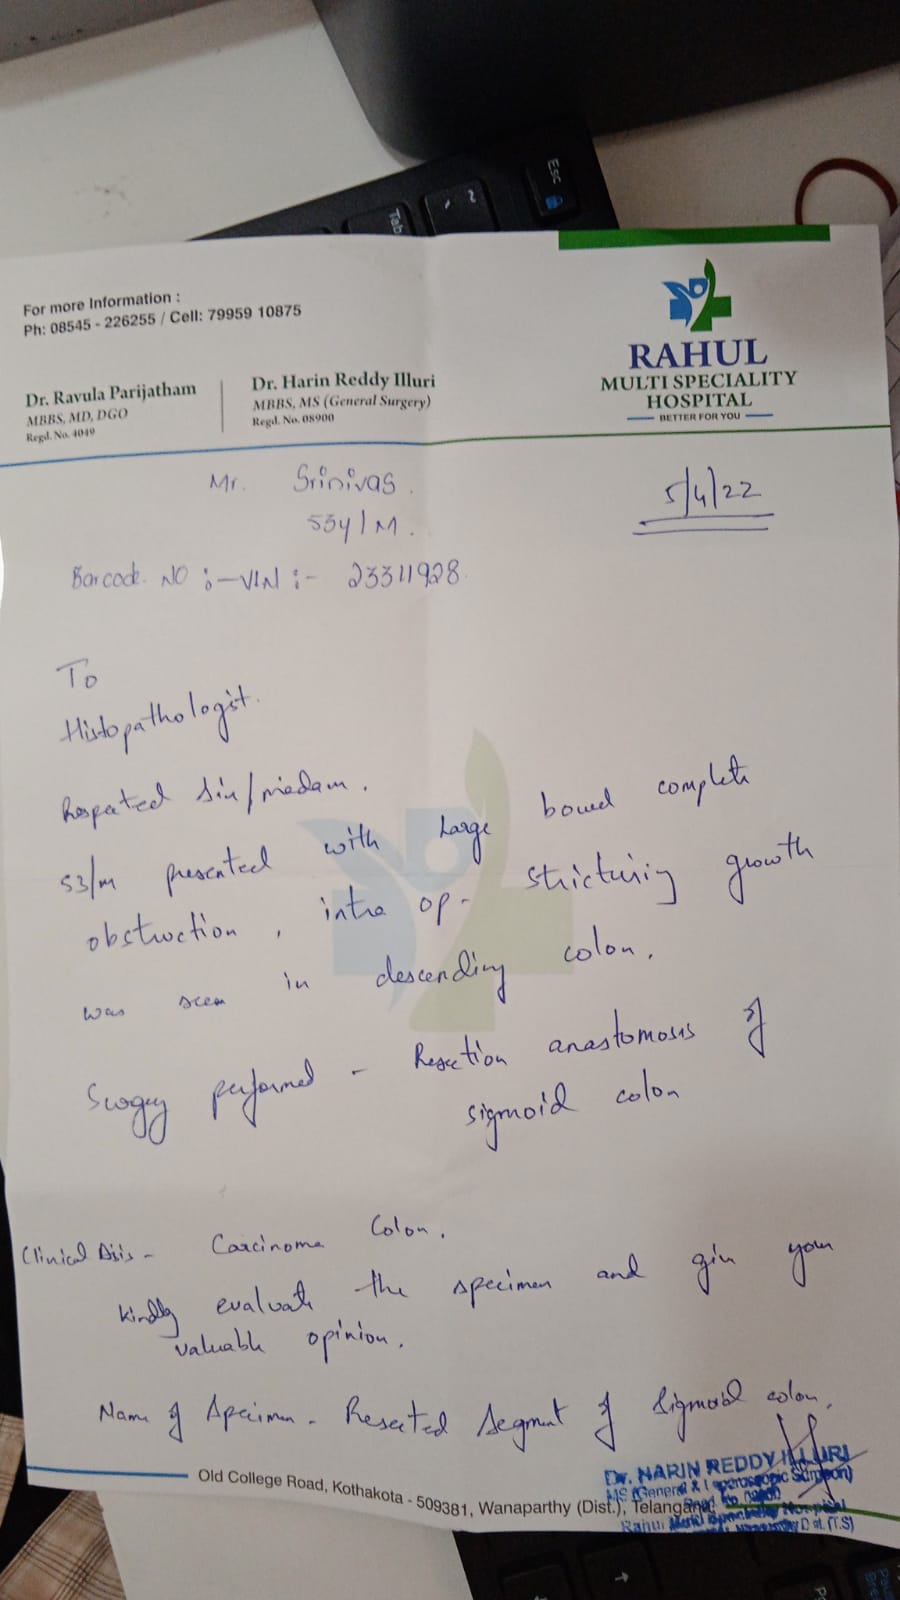 Esc
Tab
For more Information :
Ph: 08545 - 226255 / Cell: 79959 10875
RAHUL
MULTI SPECIALITY
HOSPITAL
BETTER FOR YOU
Dr. Ravula Parijatham
MBBS, MD, DGO
Regd. No. 4049
Dr. Harin Reddy Illuri
MBBS, MS (General Surgery)
Regd. No. 08900
Mr. Srinivas.
53y/M.
5/4/22
Barcode NO :- VLN :- 23311928.
To
Histopathologist.
Respected Sir/madam.
53/m presented with large bowel complete
obstruction, intra op - stricturing growth
was seen in descending colon.
Surgery performed - Resection anastomosis of
sigmoid colon
Clinical - Carcinoma Colon.
kindly evaluate the specimen and give your
valuable opinion.
Name of Specimen - Resected Segment of Sigmoid colon.
Dr. HARIN REDDY ILLURI
MS (General & Laparoscopic Surgeon)
Old College Road, Kothakota - 509381, Wanaparthy (Dist.), Telangana.